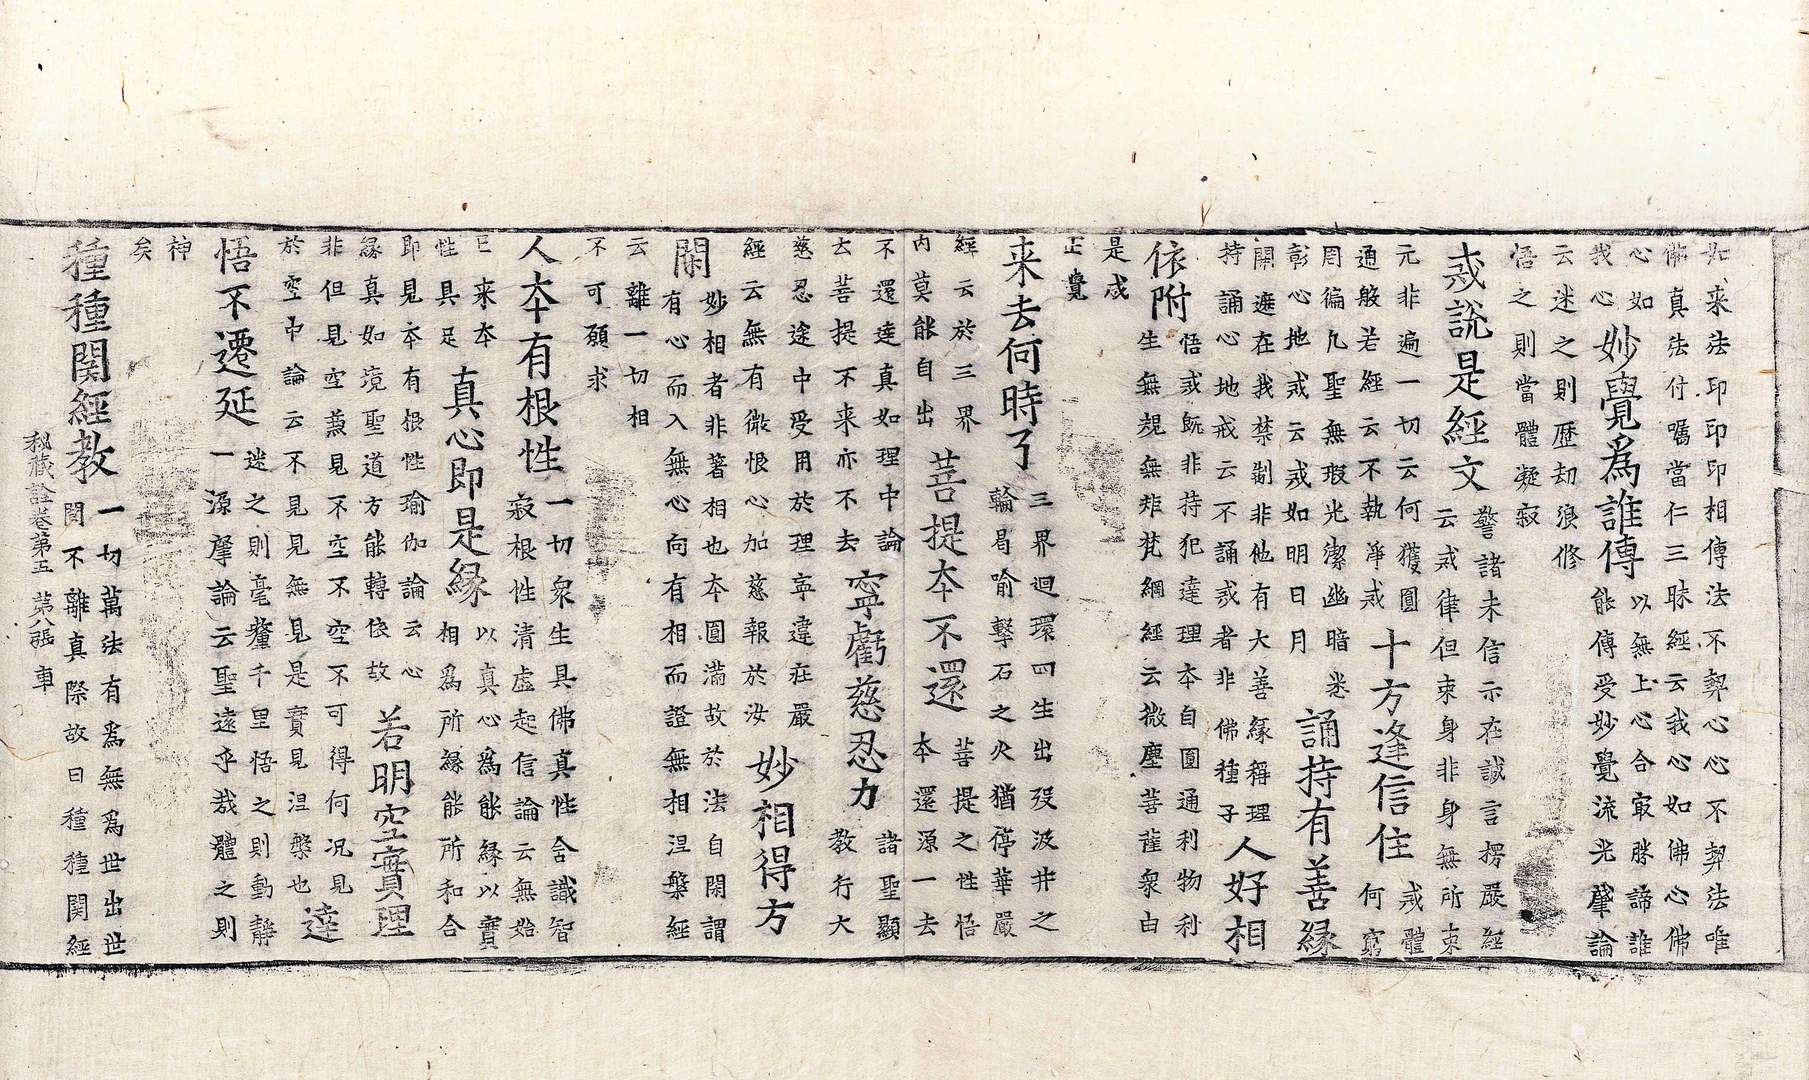 如来法印印印相傳法不契心心不契法唯
佛真法付囑當仁三昧經云我心如佛心佛
心如
我心
妙覺爲誰傳
以無上心合寂勝諦誰
能傳受妙覺流光肇論
云迷之則歷劫浪修
悟之則當體凝寂
戒說是經文
警諸未信示在誠言楞嚴經
云戒律但束身非身無所束
元非遍一切云何獲圓
通般若經云不執淨戒
十方逢信住
戒體
何窮
罔徧凡聖無瑕光潔幽暗悉
彰心地戒云戒如明日月
誦持有善緣
開遮在我禁制非他有大善緣稱理
持誦心地戒云不誦戒者非佛種子
人好相
依附
悟戒既非持犯達理本自圓通利物利
生無規無矩梵網經云微塵菩薩衆由
是成
正覺
来去何時了
三界迴環四生出沒汲井之
輪曷喻擊石之火猶停華嚴
經云於三界
內莫能自出
菩提本不還
菩提之性悟
本還源一去
不還達真如理中論
云菩提不来亦不去
寧虧慈忍力
諸聖顯
教行大
慈忍途中受用於理寧違在嚴
經云無有微恨心加慈報於汝
妙相得方
閑
妙相者非著相也本圓滿故於法自閑謂
有心而入無心向有相而證無相涅槃經
云離一切相
不可願求
人本有根性
一切衆生具佛真性含識智
寂根性清虛起信論云無始
已来本
性具足
真心即是緣
以真心爲能緣以實
相爲所緣能所和合
即見本有根性瑜伽論云心
緣真如境聖道方能轉依故
若明空實理
非但見空兼見不空不空不可得何況見
於空中論云不見見無見是實見涅槃也
達
悟不遷延
迷之則毫釐千里悟之則動靜
一源肇論云聖遠乎哉體之則
神
矣
種種関經教
一切萬法有爲無爲世出世
関不離真際故曰種種関經
秘藏詮卷第五 第八張 車